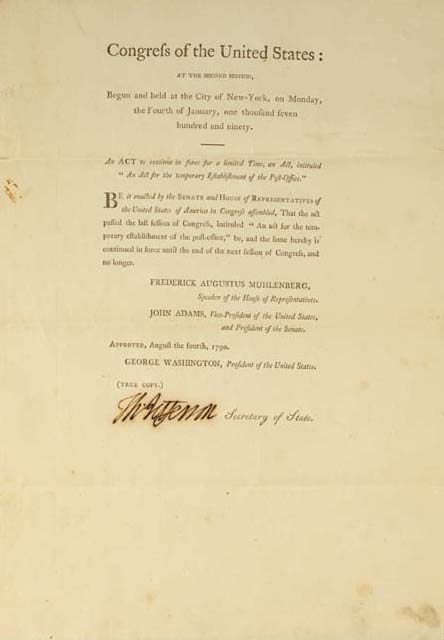 Congreſs of the United States:
AT THE SECOND SESSION,
Begun and held at the City of New-York, on Monday,
the Fourth of January, one thouſand ſeven
hundred and ninety.
An ACT to continue in force for a limited Time, an Act, intituled
“ An Act for the temporary Eſtabliſhment of the Poſt-Office.”
BE it enacted by the SENATE and HOUSE of REPRESENTATIVES of
the United States of America in Congreſs aſſembled, That the act
paſſed the laſt ſeſſion of Congreſs, intituled “ An act for the tem-
porary eſtabliſhment of the poſt-office,” be, and the ſame hereby is
continued in force until the end of the next ſeſſion of Congreſs, and
no longer.
FREDERICK AUGUSTUS MUHLENBERG,
Speaker of the Houſe of Repreſentatives.
JOHN ADAMS, Vice-Preſident of the United States,
and Preſident of the Senate.
APPROVED, Auguſt the fourth, 1790.
GEORGE WASHINGTON, Preſident of the United States.
(TRUE COPY.)
Th: Jefferson Secretary of State.